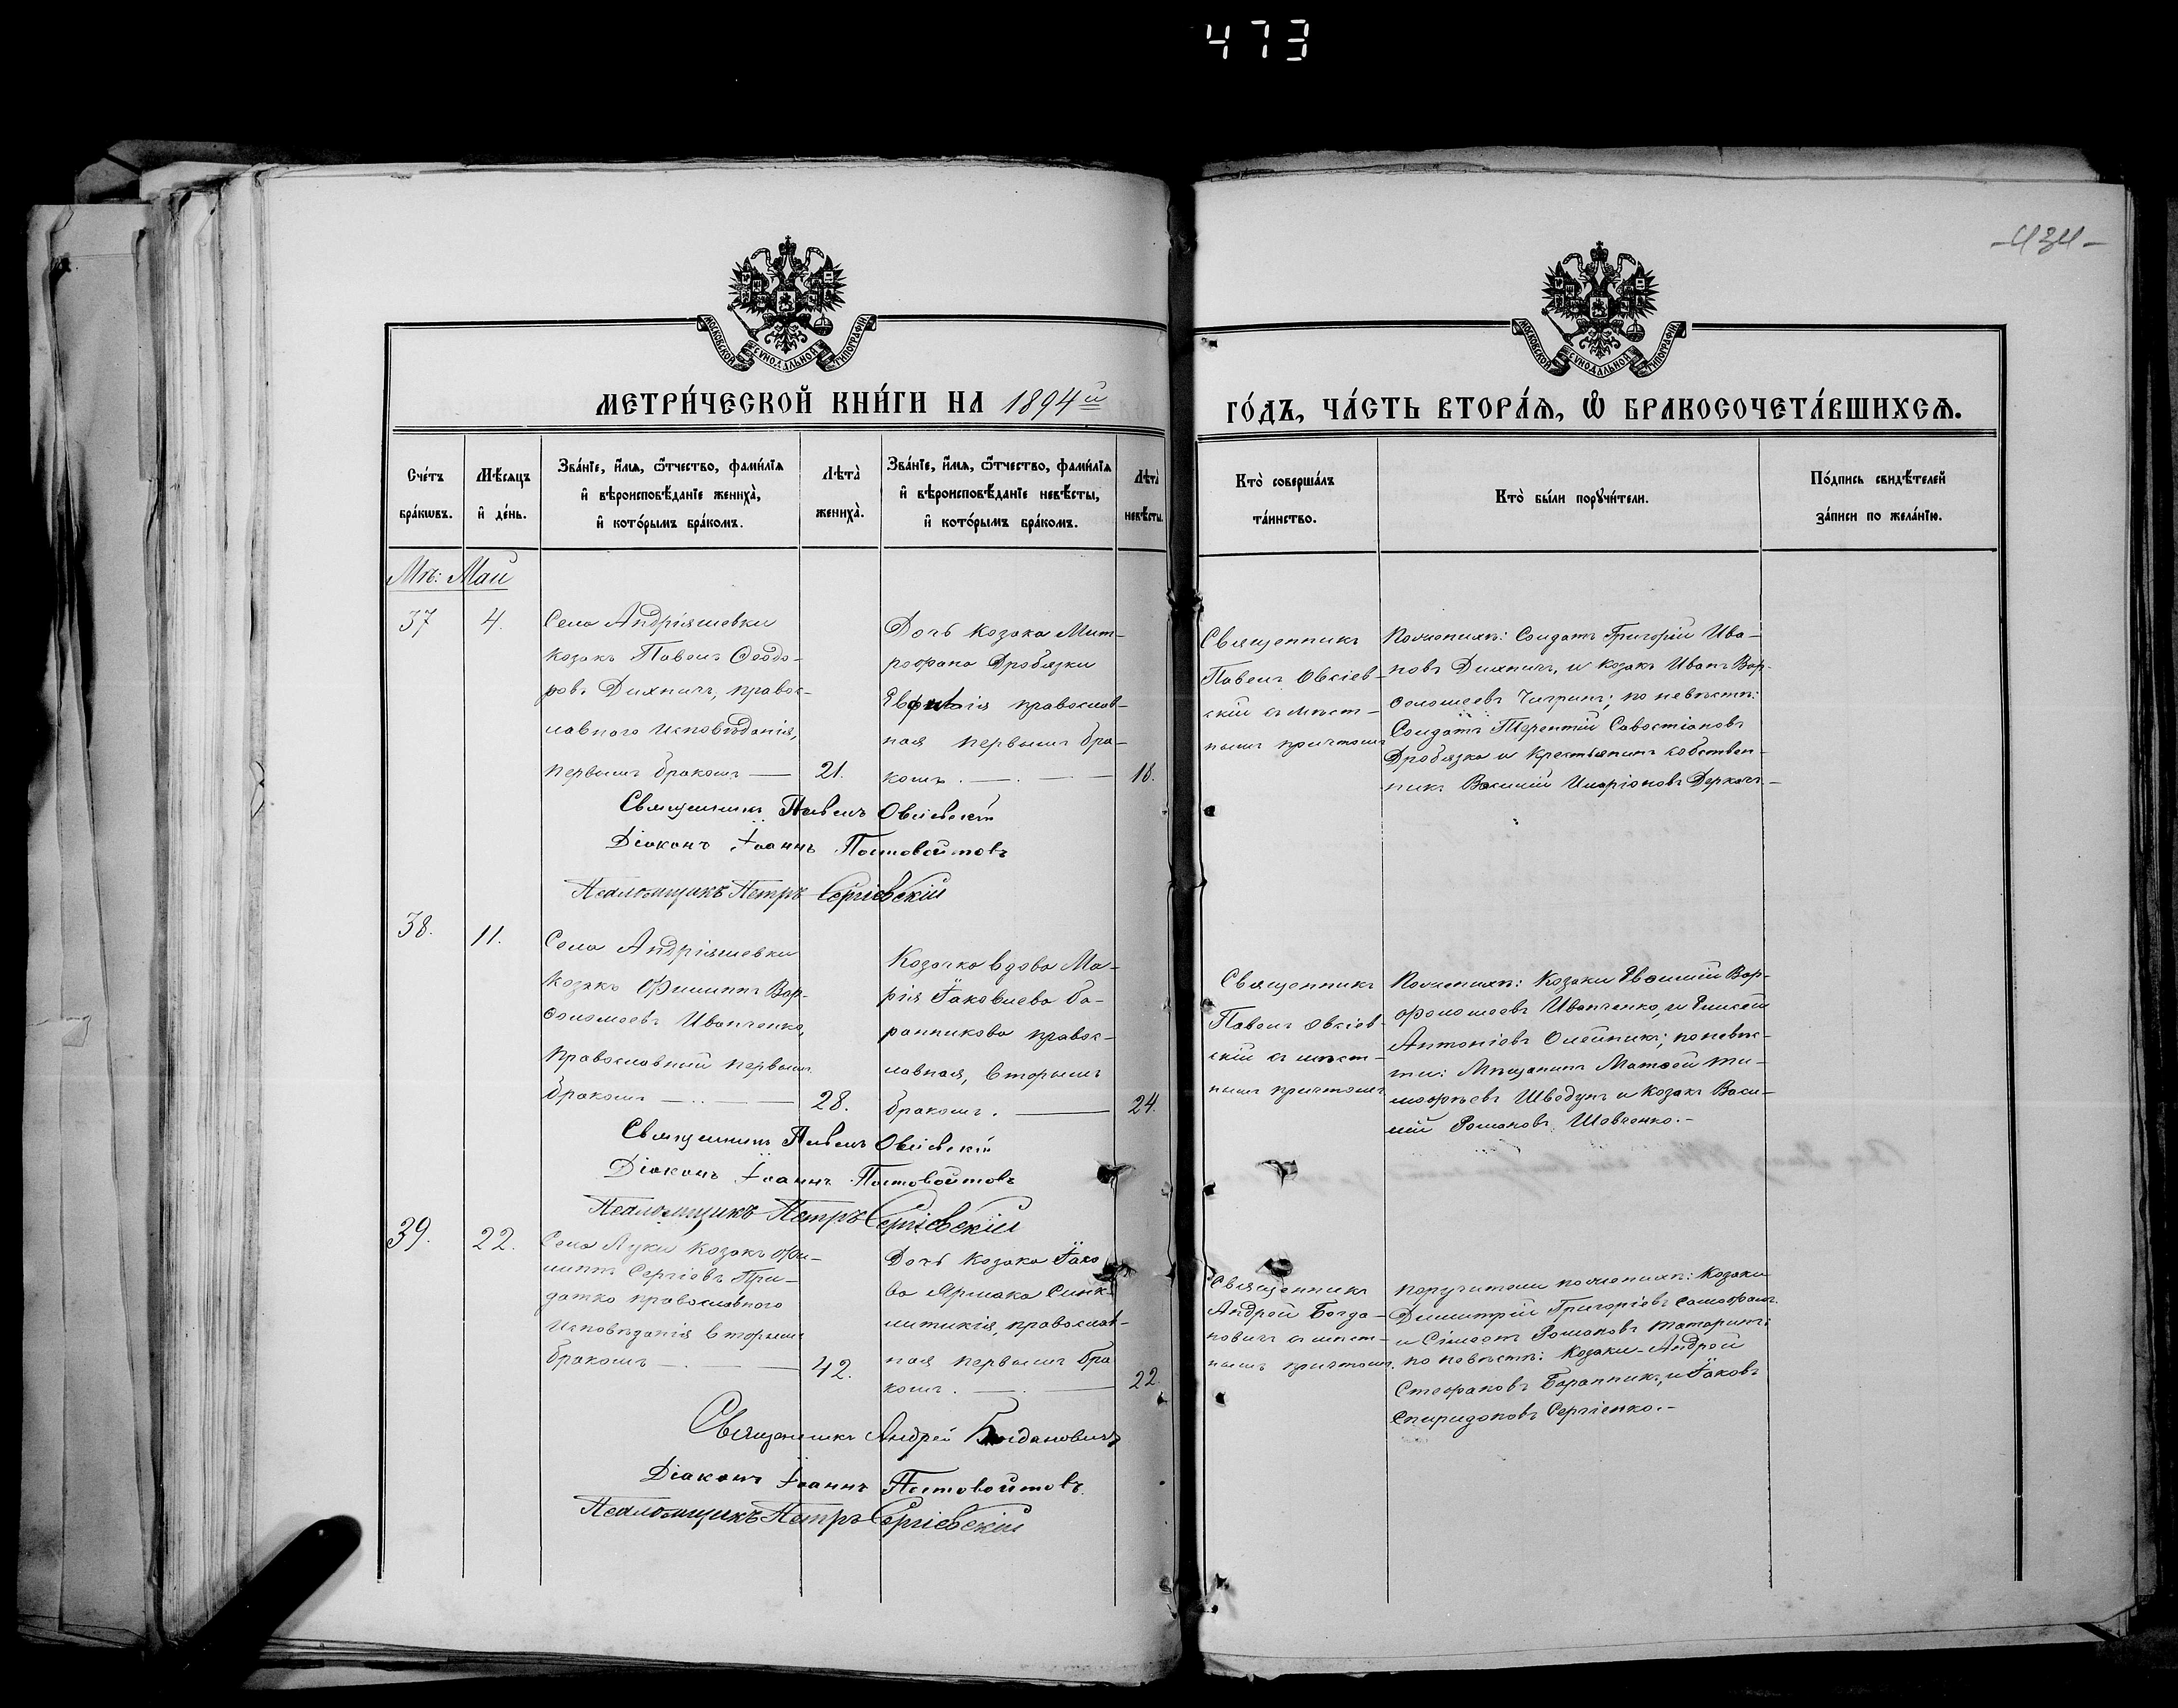 473
-434-
МОСКОВСКОЙ СѴНОДАЛЬНОЙ ТИПОГРАФІИ
МОСКОВСКОЙ СѴНОДАЛЬНОЙ ТИПОГРАФІИ
МЕТРИ́ЧЕСКОЙ КНИ́ГИ НА 1894й
ГО́ДЪ, ЧА́СТЬ ВТОРА́Ѧ, Ѡ БРАКОСОЧЕТА́ВШИХСѦ.
Сче́тъ
бра́кѡвъ.
Мѣ́сяцъ
и҆ де́нь.
Зва́нїе, и҆́мя, ѻ҆́тчество, фами́лїя
и҆ вѣроисповѣ́данїе жениха̀,
и҆ кото́рымъ бра́комъ.
Лѣта̀
жениха̀.
Зва́нїе, и҆́мя, ѻ҆́тчество, фами́лїя
и҆ вѣроисповѣ́данїе невѣ́сты,
и҆ кото́рымъ бра́комъ.
Лѣта̀
невѣ́сты.
Кто̀ соверша́лъ
та́инство.
Кто̀ бы́ли порꙋчи́тели.
По́дпись свидѣ́телей
за́писи по жела́нїю.
Мц: Май
37
4.
Села Андріяшевки
козакъ Павелъ Ѳеодо-
ровъ Дихничъ, правос-
лавнаго исповѣданія,
первымъ бракомъ —
21.
Дочь козака Мит-
рофана Дробязки
Евфимія православ-
ная первымъ бра-
комъ. —
18.
Священникъ
Павелъ Овсіев-
скій съ мѣст-
нымъ причтомъ
По женихѣ: Солдатъ Григорій Ива-
новъ Дихничъ, и козакъ Иванъ Вар-
ѳоломеевъ Чигринъ; по невѣстѣ:
Солдатъ Терентій Савостіановъ
Дробязка и крестьянинъ собствен-
никъ Василій Иларіоновъ Деркачъ—
Священникъ Павелъ Овсіевскій
Діаконъ Іоаннъ Постовойтовъ
Псаломщикъ Петръ Сергіевскій
38.
11.
Села Андріяшевки
козакъ Филиппъ Вар-
ѳоломеевъ Иванченко,
православный первымъ
бракомъ —
28.
Козачка вдова Ма-
рія Іаковлева Ба-
ранникова правос-
лавная, вторымъ
бракомъ. —
24.
Священникъ
Павелъ Овсіев-
скій съ мѣст-
нымъ причтомъ
По женихѣ: Козаки Евфимій Вар-
фоломеевъ Иванченко, и Елисей
Антоніевъ Олейникъ; по невѣс-
тѣ: Мѣщанинъ Матѳей Ти-
моѳеевъ Шведунъ и козакъ Васи-
лій Романовъ Шевченко.-
Священникъ Павелъ Овсіевскій
Діаконъ Іоаннъ Постовойтовъ
Псаломщикъ Петръ Сергіевскій
39.
22.
Села Луки козакъ Фи-
липпъ Сергіевъ При-
датко православнаго
исповѣданія вторымъ
бракомъ —
42.
Дочь козака Іако
ва Ярмака Синк-
литикія, православ-
ная первымъ бра
комъ. —
22.
Священникъ
Андрей Богда-
новичъ съ мѣст-
нымъ причтомъ.
Поручители по женихѣ: Козаки
Димитрій Григоріевъ Самофалъ
и Сімеонъ Романовъ Татаринъ;
по невѣстѣ: Козаки - Андрей
Стефановъ Баранникъ, и Іаковъ
Спиридоновъ Сергіенко.-
Священникъ Андрей Богдановичъ
Діаконъ Іоаннъ Постовойтовъ.
Псаломщикъ Петръ Сергіевскій